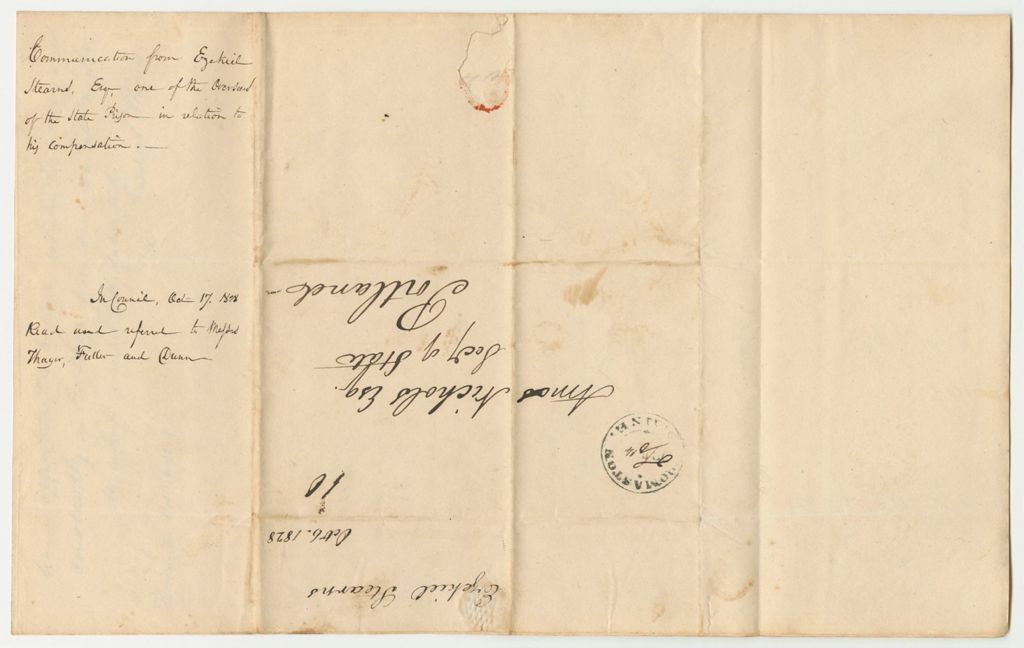 Communication from Ezekiel
Stearns, Esqr, one of the Overseers
of the State Prison in relation to
his compensation. —
In Council, Oct 17. 1828
Read and referred to Messrs
Thayer, Fuller and Dunn
Ezekiel Stearns
Oct 6. 1828
10
THOMASTON
MAINE.
Amos Nichols Esq.
Secy of State
Portland